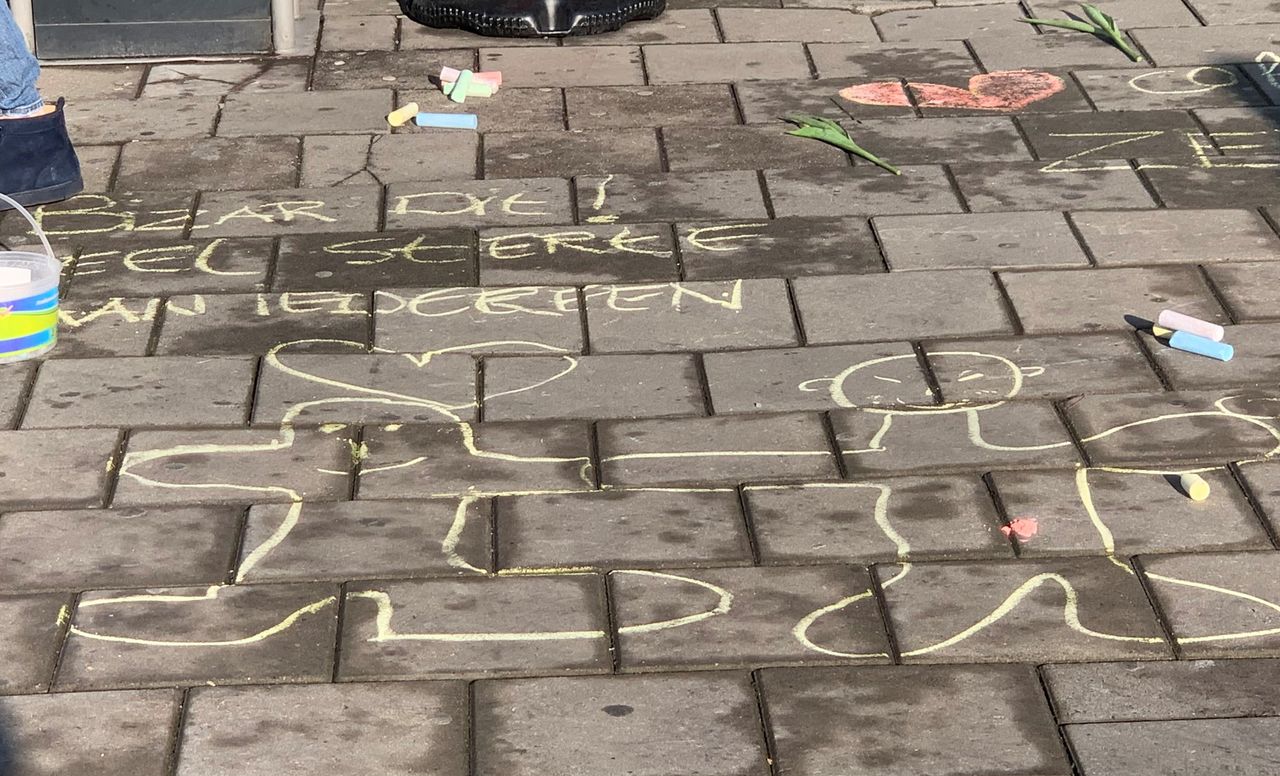 BIZAR DIT!
VEEL STERKTE
AAN IEDEREEN
ZE